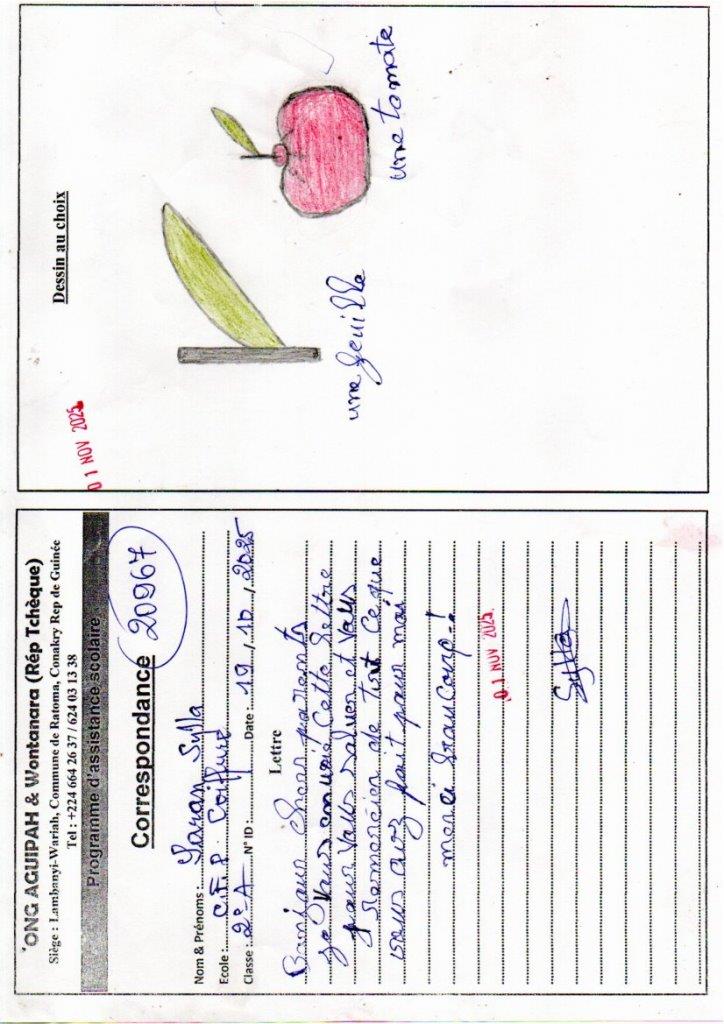 ONG AGUIPAH & Wontanara (Rép Tchèque)
Siège : Lambanyi-Wariah, Commune de Ratoma, Conakry Rep de Guinée
Tel : +224 664 26 37 / 624 03 13 38
Programme d'assistance scolaire
Correspondance 20967
Nom & Prénoms : Saran Sylla
Ecole : C.F.P Coiffure
Classe : 2e A N° ID : Date : 19 / 10 / 2025
Lettre
Bonjour cheer parents
je Vous envoie Cette lettre
pour Vous saluer et Vous
Remercier de tout Ce que
vous avez fait pour moi
merci beaucoup !
01 NOV 2025
Sylla
Dessin au choix
01 NOV 2025
une feuille
une tomate